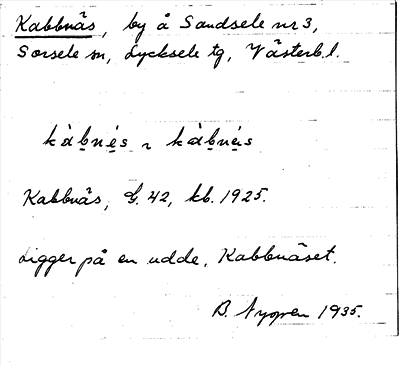 Kabbnäs, by å Sandsele nr 3,
Sorsele sn, Lycksele tg, Västerb.l.
kàb̲né̲s ~ kàb̲né̲s
Kabbnäs, G. 42, kb. 1925.
Ligger på en udde, Kabbnäset.
B. Nygren 1935.